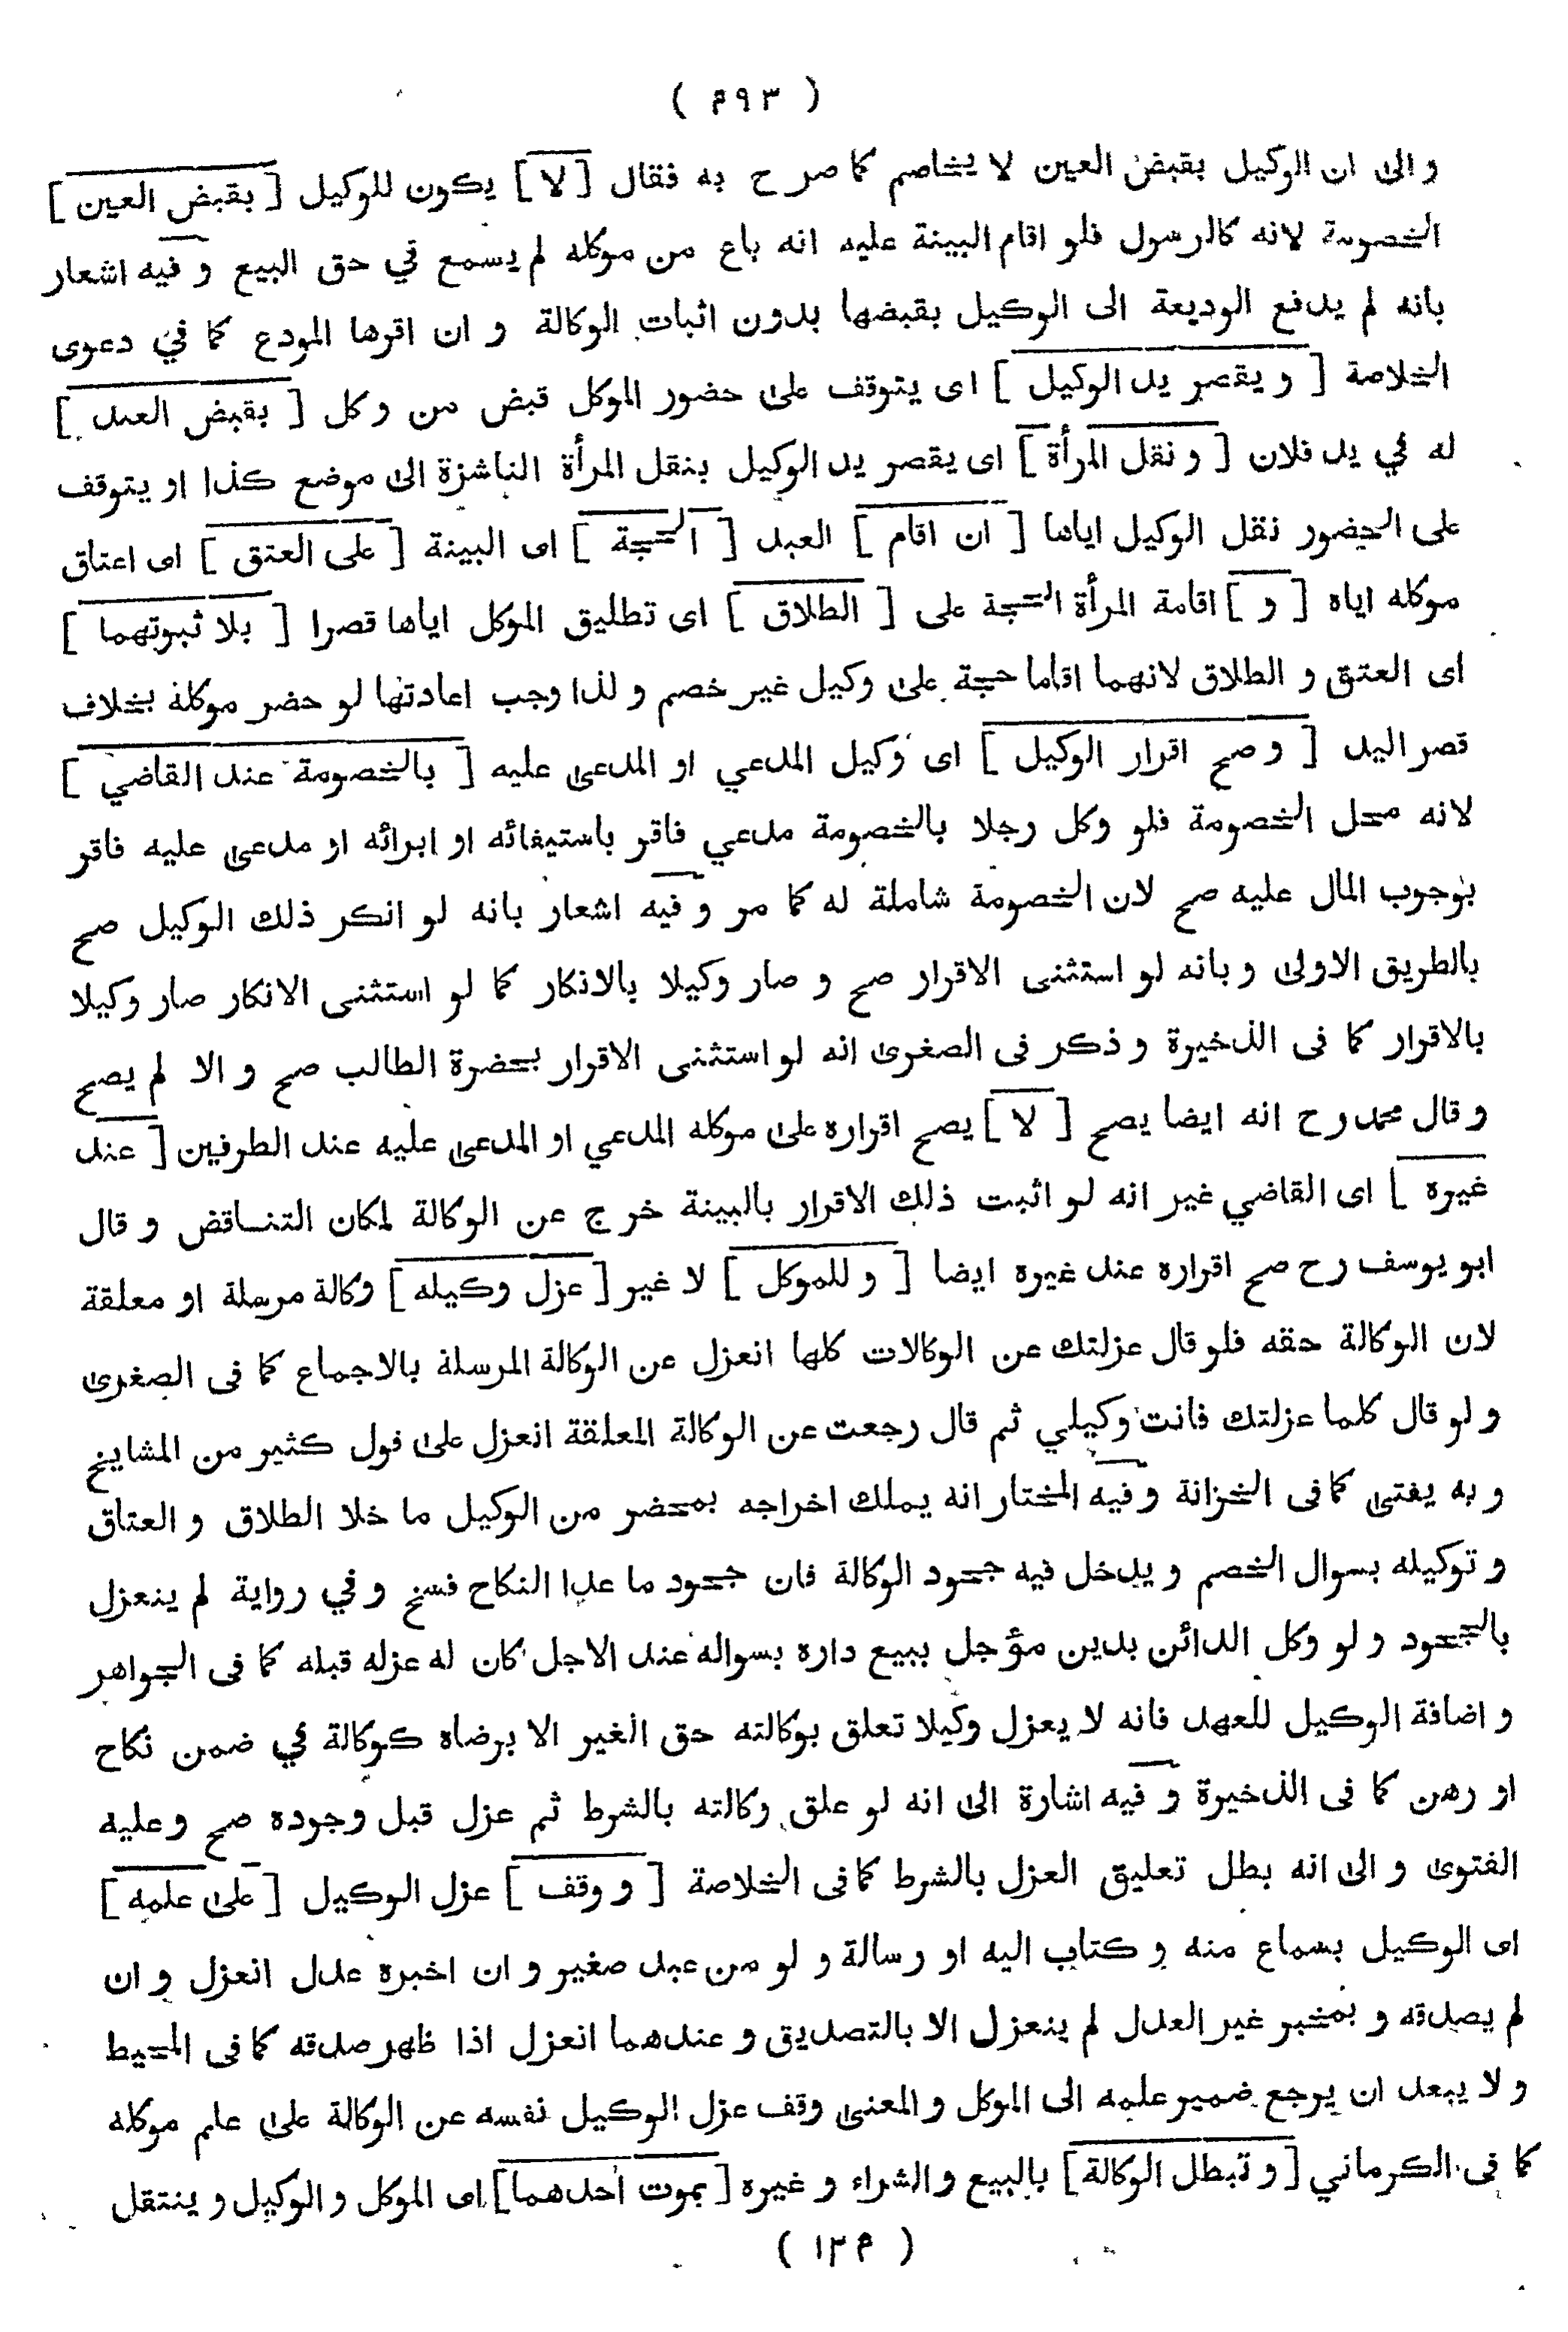 ( ۴۹۳ )
و الى ان الوكيل بقبض العين لا يخاصم كما صرح به فقال [ لا ] يكون للوكيل [ بقبض العين ]
الخصومة لانه كالرسول فلو اقام البينة عليه انه باع من موكله لم يسمع في حق البيع و فيه اشعار
بانه لم يدفع الوديعة الى الوكيل بقبضها بدون اثبات الوكالة و ان اقرها المودع كما في دعوى
الخلاصة [ و يقصر يد الوكيل ] اى يتوقف على حضور الموكل قبض من وكل [ بقبض العبد ]
له في يد فلان [ و نقل المرأة ] اى يقصر يد الوكيل بنقل المرأة الناشزة الى موضع كذا او يتوقف
على الحضور نقل الوكيل اياها [ ان اقام ] العبد [ الحجة ] اى البينة [ على العتق ] اى اعتاق
موكله اياه [ و ] اقامة المرأة الحجة على [ الطلاق ] اى تطليق الموكل اياها قصرا [ بلا ثبوتهما ]
اى العتق و الطلاق لانهما اقاما حجة على وكيل غير خصم و لذا وجب اعادتها لو حضر موكله بخلاف
قصر اليد [ و صح اقرار الوكيل ] اى وكيل المدعي او المدعى عليه [ بالخصومة عند القاضي ]
لانه محل الخصومة فلو وكل رجلا بالخصومة مدعي فاقر باستيفائه او ابرائه او مدعى عليه فاقر
بوجوب المال عليه صح لان الخصومة شاملة له كما مر و فيه اشعار بانه لو انكر ذلك الوكيل صح
بالطريق الاولى و بانه لو استثنى الاقرار صح و صار وكيلا بالانكار كما لو استثنى الانكار صار وكيلا
بالاقرار كما فى الذخيرة و ذكر فى الصغرى انه لو استثنى الاقرار بحضرة الطالب صح و الا لم يصح
و قال محمد رح انه ايضا يصح [ لا ] يصح اقراره على موكله المدعي او المدعى عليه عند الطرفين [ عند
غيره ] اى القاضي غير انه لو اثبت ذلك الاقرار بالبينة خرج عن الوكالة لمكان التناقض و قال
ابو يوسف رح صح اقراره عند غيره ايضا [ و للموكل ] لا غير [ عزل وكيله ] وكالة مرسلة او معلقة
لان الوكالة حقه فلو قال عزلتك عن الوكالات كلها انعزل عن الوكالة المرسلة بالاجماع كما فى الصغرى
و لو قال كلما عزلتك فانت وكيلي ثم قال رجعت عن الوكالة المعلقة انعزل على قول كثير من المشايخ
و به يفتى كما فى الخزانة و فيه المختار انه يملك اخراجه بمحضر من الوكيل ما خلا الطلاق و العتاق
و توكيله بسوال الخصم و يدخل فيه جحود الوكالة فان جحود ما عدا النكاح فسخ و في رواية لم ينعزل
بالجحود و لو وكل الدائن بدين مؤجل ببيع داره بسواله عند الاجل كان له عزله قبله كما فى الجواهر
و اضافة الوكيل للعهد فانه لا يعزل وكيلا تعلق بوكالته حق الغير الا برضاه كوكالة في ضمن نكاح
او رهن كما فى الذخيرة و فيه اشارة الى انه لو علق وكالته بالشرط ثم عزل قبل وجوده صح وعليه
الفتوى و الى انه بطل تعليق العزل بالشرط كما فى الخلاصة [ و وقف ] عزل الوكيل [ على علمه ]
اى الوكيل بسماع منه و كتاب اليه او رسالة و لو من عبد صغير و ان اخبره عدل انعزل و ان
لم يصدقه و بمخبر غير العدل لم ينعزل الا بالتصديق و عندهما انعزل اذا ظهر صدقه كما فى المحيط
و لا يبعد ان يرجع ضمير علمه الى الموكل و المعنى وقف عزل الوكيل نفسه عن الوكالة على علم موكله
كما فى الكرماني [ و تبطل الوكالة ] بالبيع و الشراء و غيره [ بموت احدهما ] اى الموكل و الوكيل و ينتقل
( ۱۲۴ )